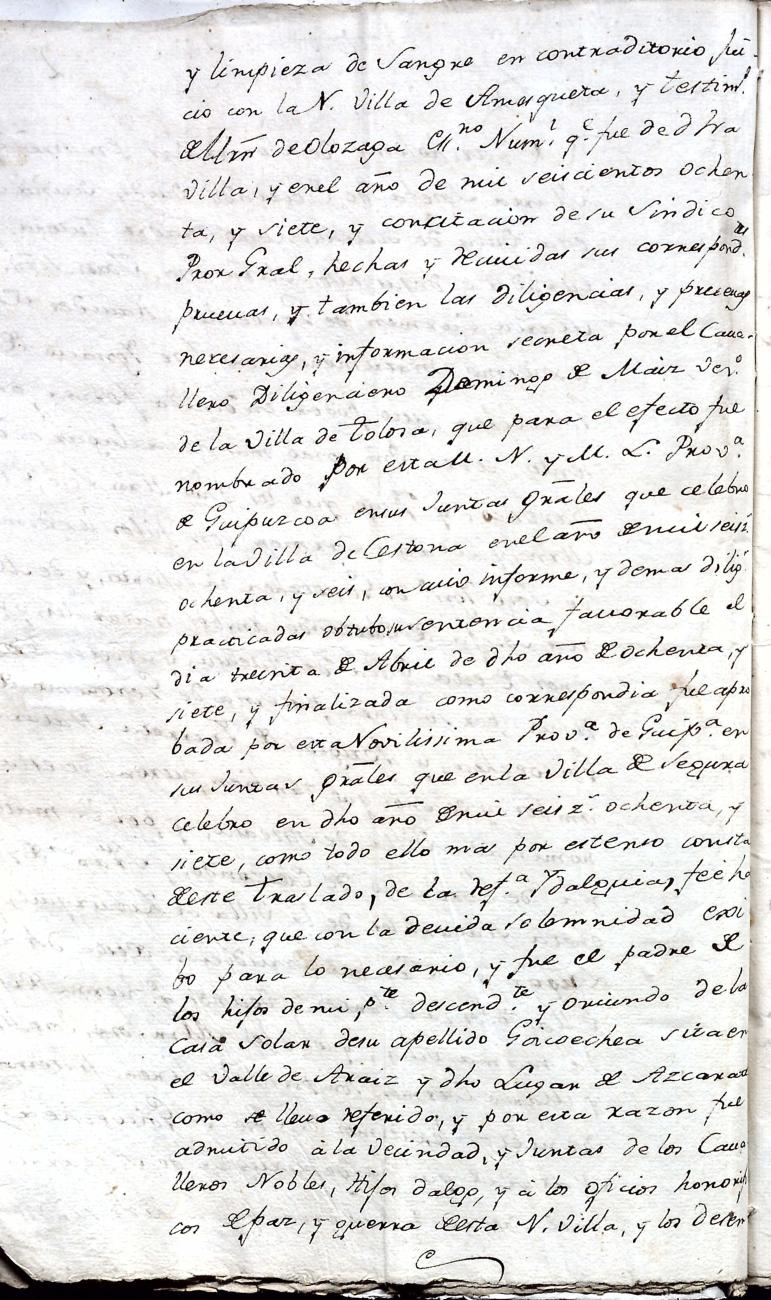 y limpieza de Sangre en contraditorio jui-
cio con la N. Villa de Amesqueta, y testim.
de Mrn de Olozaga Es.no Num.l q.e fue de dha
villa, y en el año de mil seiscientos ochen
ta, y siete, y con citacion de su Sindico
Pror Gral, hechas y deuidas sus correspond.tes
prueuas, y tambien las diligencias, y prueuas
necesarias, y informacion secreta por el Caua-
llero Diligenciero Domingo de Maiz Vez.o
de la Villa de Tolosa, que para el efecto fue
nombrado por esta M. N. y M. L. Prov.a
de Guipuzcoa en sus Juntas Grales que celebro
en la Villa de Cestona en el año de mil seisz.
ochenta, y seis, con cuio informe, y demas dilig.
practicadas obtubo su sentencia favorable el
dia treinta de Abril de dho año de ochenta, y
siete, y finalizada como correspondia fue apro
bada por esta Novilissima Prov.a de Guip.a en
sus Juntas Grales que en la Villa de Segura
celebro en dho año de mil seisz.s ochenta, y
siete, como todo ello mas por estenso consta
de este Traslado, de la ref.a Ydalguia, feeha
ciente, que con la deuida solemnidad exsi
bo para lo necesario, y fue el padre de
los hijos de mi p.te descend.te y oriundo de la
Casa Solar de su apellido Goicoechea sita en
el Valle de Araiz y dho Lugar de Azcarate
como se lleua referido, y por esta razon fue
admitido à la Vecindad, y Juntas de los Caua
lleros Nobles, Hijos dalgo, y à los oficios honorifi
cos de paz, y guerra de esta N. Villa, y los desem